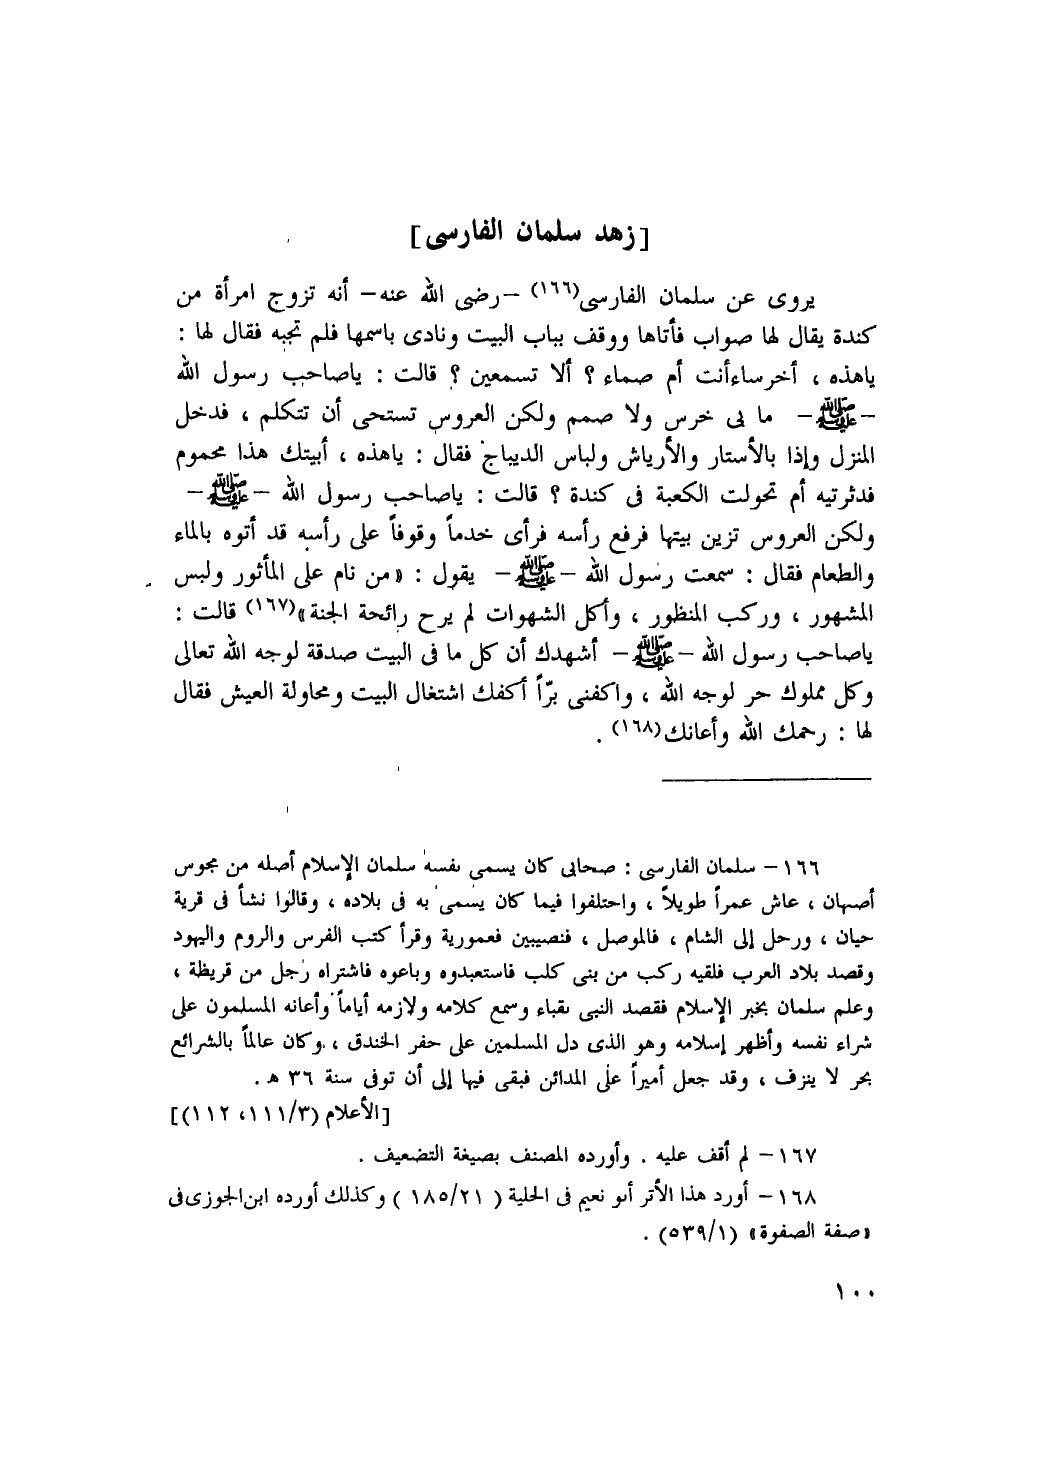 [زهد سلمان الفارسى]
يروى عن سلمان الفارسى(١٦٦) –رضى الله عنه– أنه تزوج امرأة من
كندة يقال لها صواب فأتاها ووقف بباب البيت ونادى باسمها فلم تجبه فقال لها :
ياهذه ، أخرساءأنت أم صماء ؟ ألا تسمعين ؟ قالت : ياصاحب رسول الله
–ﷺ– ما بى خرس ولا صمم ولكن العروس تستحى أن تتكلم ، فدخل
المنزل وإذا بالأستار والأرياش ولباس الديباج فقال : ياهذه ، أبيتك هذا محموم
فدثرتيه أم تحولت الكعبة فى كندة ؟ قالت : ياصاحب رسول الله –ﷺ–
ولكن العروس تزين بيتها فرفع رأسه فرأى خدماً وقوفاً على رأسه قد أتوه بالماء
والطعام فقال : سمعت رسول الله –ﷺ– يقول : «من نام على المأثور ولبس
المشهور ، وركب المنظور ، وأكل الشهوات لم يرح رائحة الجنة»(١٦٧) قالت :
ياصاحب رسول الله –ﷺ– أشهدك أن كل ما فى البيت صدقة لوجه الله تعالى
وكل مملوك حر لوجه الله ، واكفنى برّاً أكفك اشتغال البيت ومحاولة العيش فقال
لها : رحمك الله وأعانك(١٦٨) .
١٦٦– سلمان الفارسى : صحابى كان يسمى نفسه سلمان الإسلام أصله من مجوس
أصبهان ، عاش عمراً طويلاً ، واختلفوا فيما كان يسمى به فى بلاده ، وقالوا نشأ فى قرية
جيان ، ورحل إلى الشام ، فالموصل ، فنصيبين فعمورية وقرأ كتب الفرس والروم واليهود
وقصد بلاد العرب فلقيه ركب من بنى كلب فاستعبدوه وباعوه فاشتراه رجل من قريظة ،
وعلم سلمان بخبر الإسلام فقصد النبى بقباء وسمع كلامه ولازمه أياماً وأعانه المسلمون على
شراء نفسه وأظهر إسلامه وهو الذى دل المسلمين على حفر الخندق ، وكان عالماً بالشرائع
بحر لا ينزف ، وقد جعل أميراً على المدائن فبقى فيها إلى أن توفى سنة ٣٦ هـ .
[الأعلام (١١١/٣، ١١٢)]
١٦٧– لم أقف عليه . وأورده المصنف بصيغة التضعيف .
١٦٨– أورد هذا الأثر أبو نعيم فى الحلية ( ١٨٥/٢١ ) وكذلك أورده ابن الجوزى فى
«صفة الصفوة» (٥٣٩/١) .
١٠٠